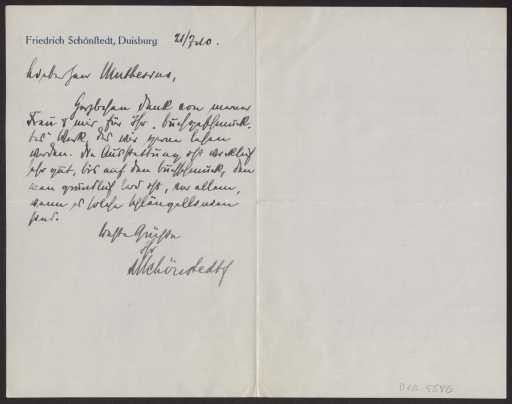 Friedrich Schönstedt, Duisburg 21/7.10.
Lieber Herr Muthesius,
Herzlichen Dank von meiner
Frau & mir für Ihr "buchgeschmück-
tes" Werk, das wir gerne lesen
werden. Die Ausstattung ist wirklich
sehr gut, bis auf den Buchschmuck, den
man gründlich leid ist, vor allem,
wenn es solche
sind.
Beste Grüsse
Ihr
Schönstedt